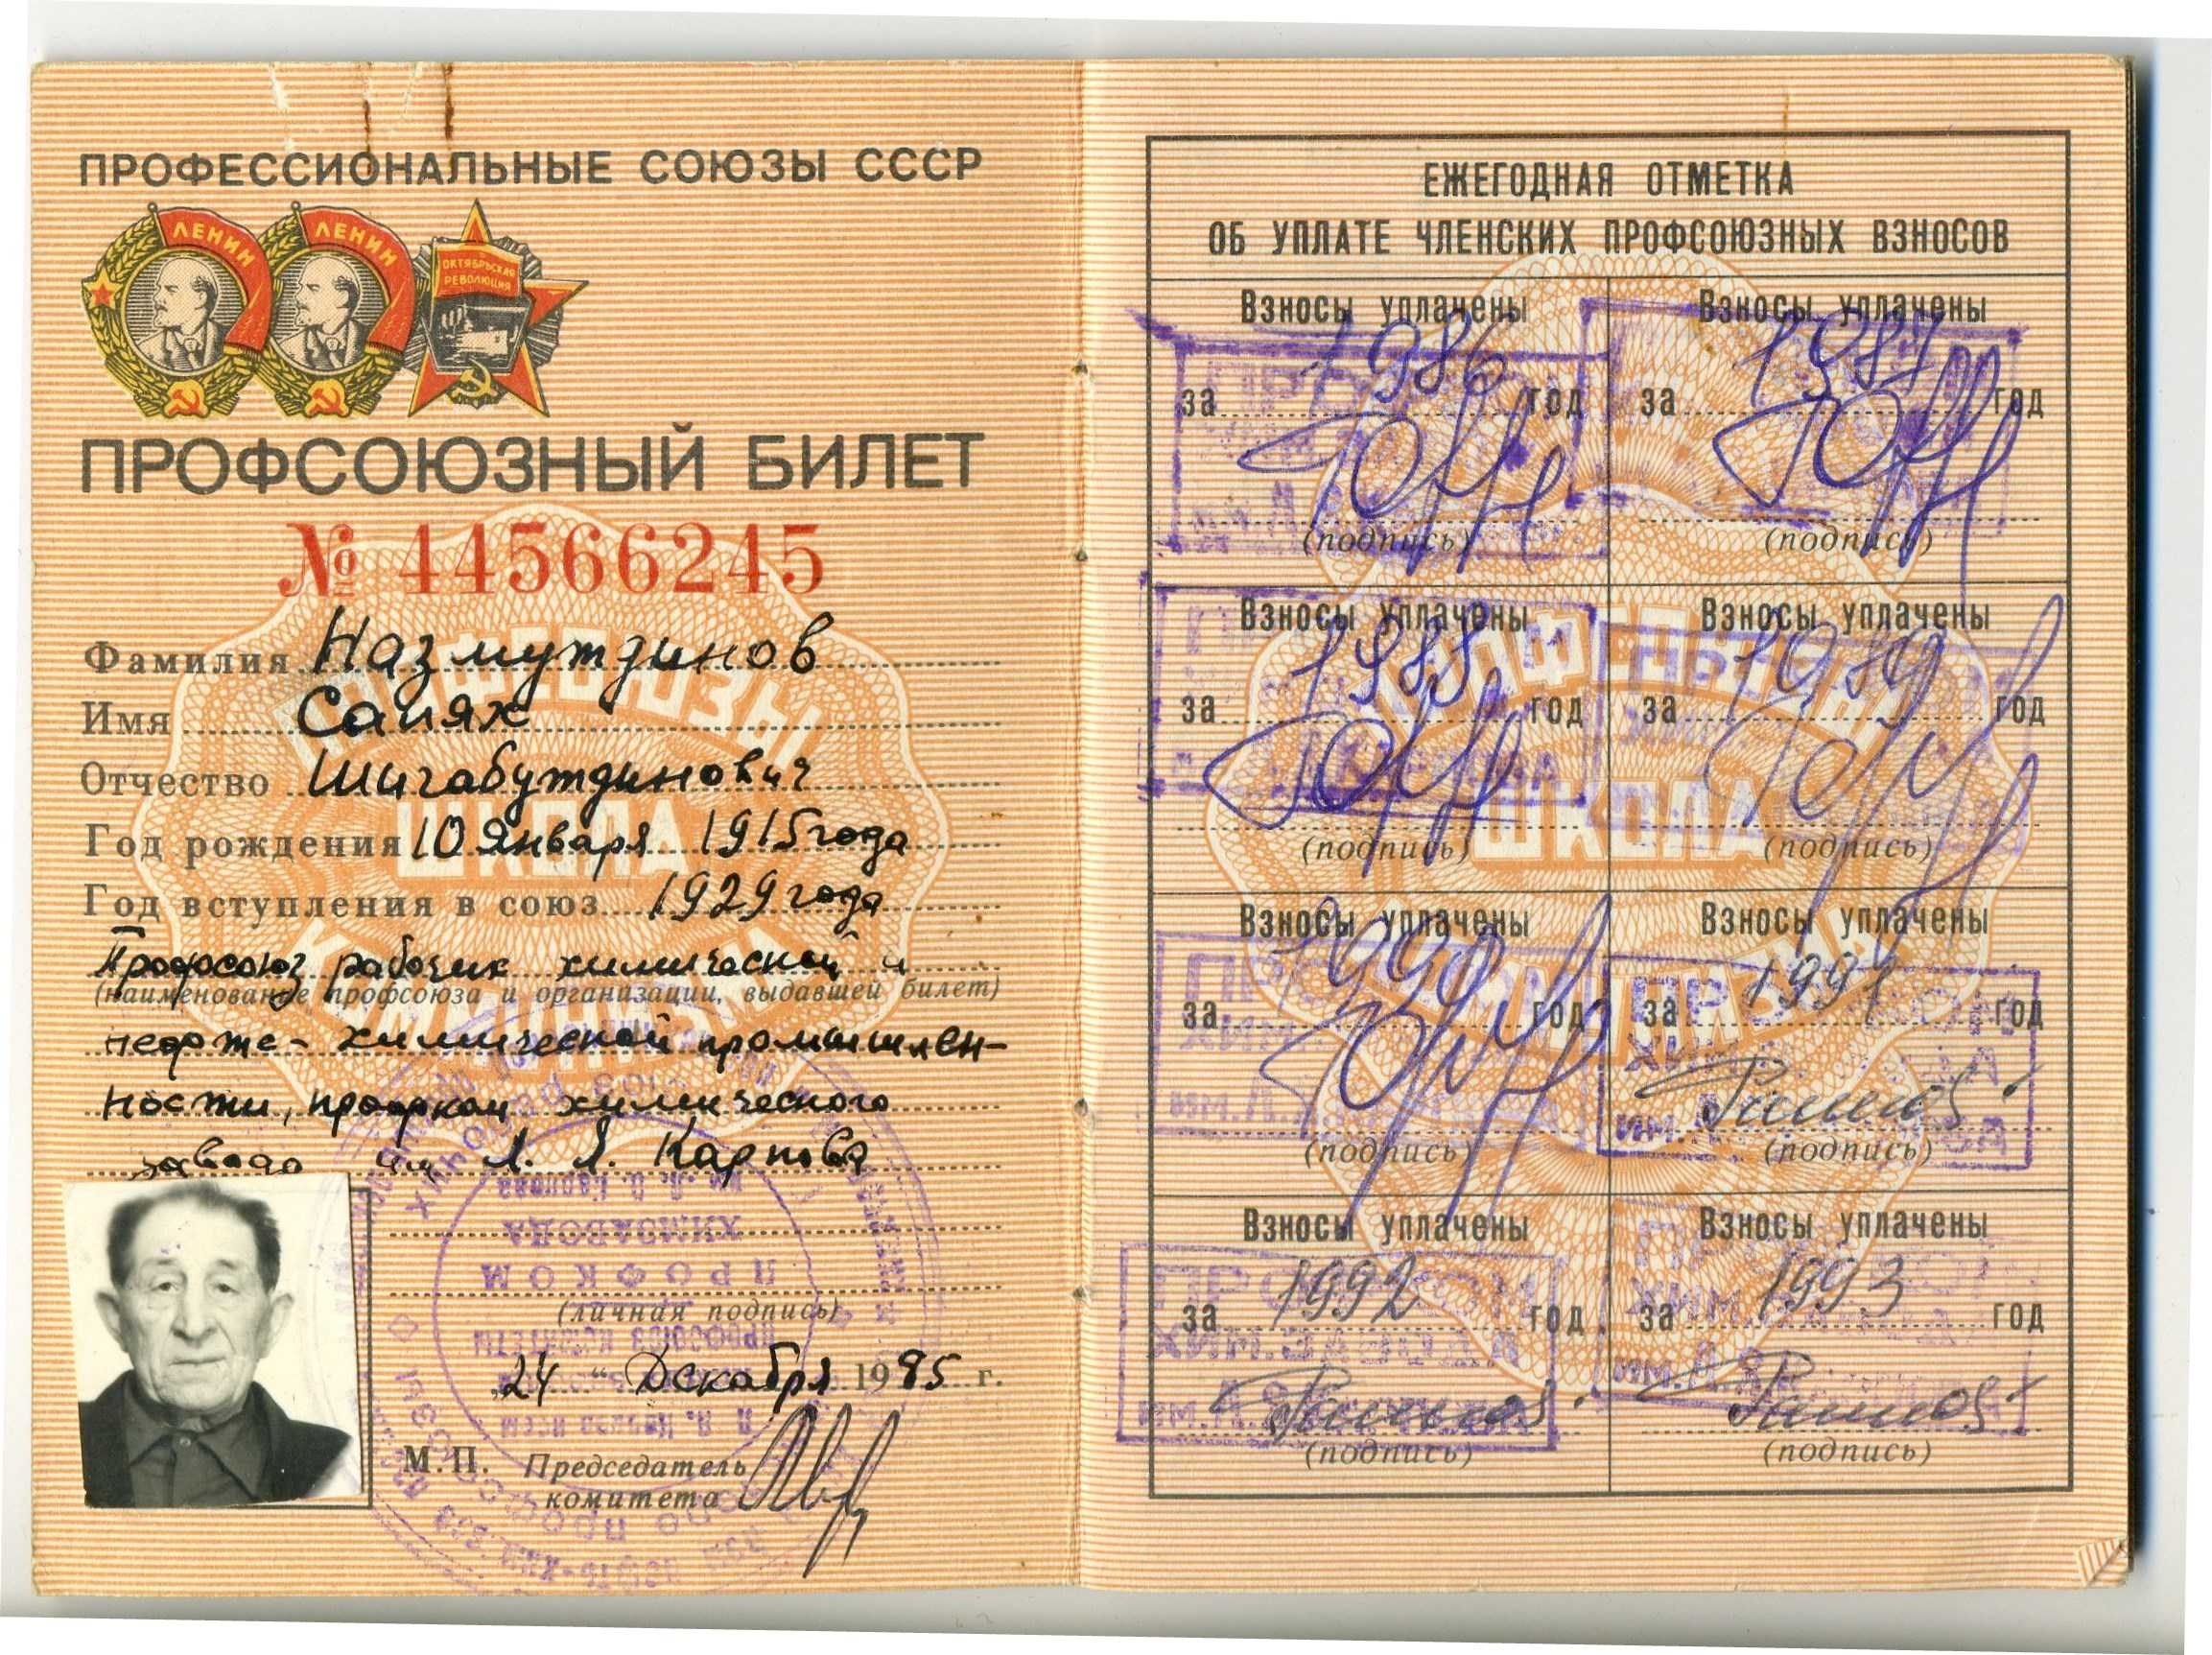 ПРОФЕССИОНАЛЬНЫЕ СОЮЗЫ СССР
ЛЕНИН ЛЕНИН ОКТЯБРЬСКАЯ
РЕВОЛЮЦИЯ
ПРОФСОЮЗНЫЙ БИЛЕТ
№ 44566245
Фамилия Назмутдинов
Имя Сапях
Отчество Шигабутдинович
Год рождения 10 Января 1915 года
Год вступления в союз 1929 года
Профсоюз рабочих химической и
(наименование профсоюза и организации, выдавшей билет)
нефте-химической промышлен-
ности, профком химического
завода им Л. Я. Карпова
(личная подпись)
„24“ Декабря 1985 г.
М.П. Председатель
комитета
ПРОФСОЮЗЫ
ШКОЛА
КОММУНИЗМА
ПРОФКОМ
ХИМЗАВОДА
ЕЖЕГОДНАЯ ОТМЕТКА
ОБ УПЛАТЕ ЧЛЕНСКИХ ПРОФСОЮЗНЫХ ВЗНОСОВ
Взносы уплачены Взносы уплачены
за 1986 год за 1987 год
(подпись) (подпись)
Взносы уплачены Взносы уплачены
за 1988 год за 1989 год
(подпись) (подпись)
Взносы уплачены Взносы уплачены
за 1990 год за 1991 год
(подпись) (подпись)
Взносы уплачены Взносы уплачены
за 1992 год за 1993 год
(подпись) (подпись)